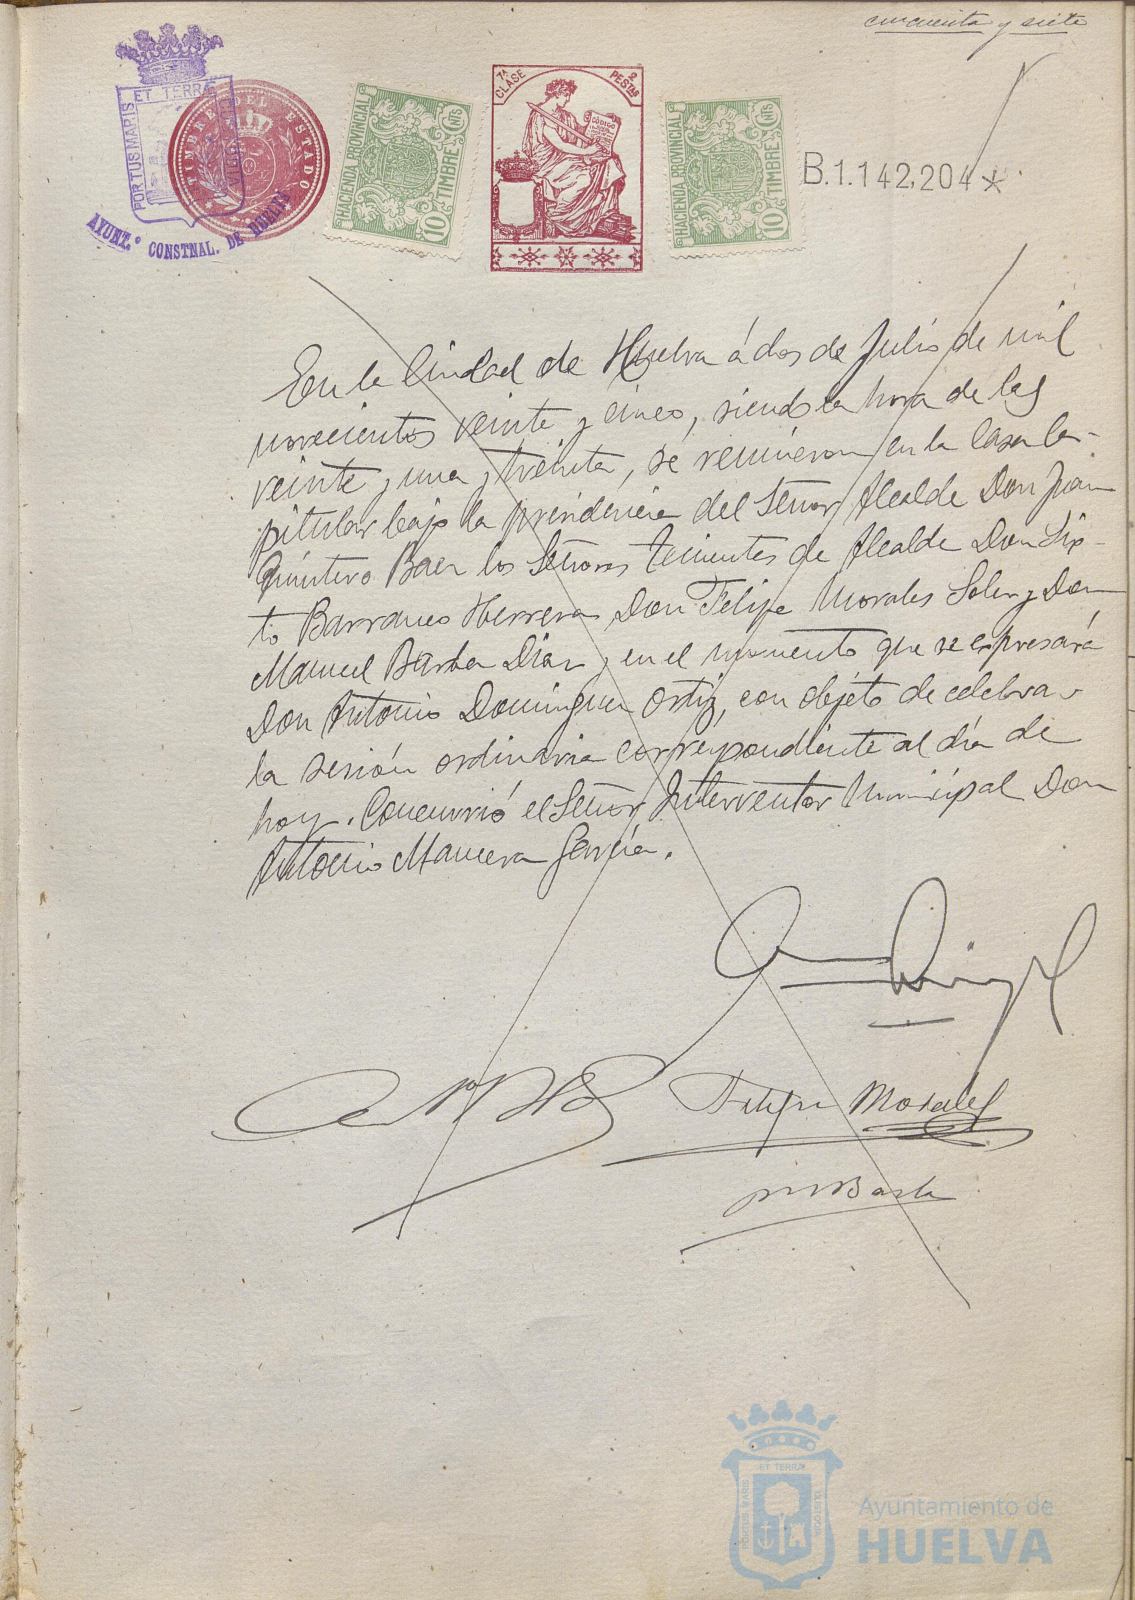 cincuenta y siete
PORTUS MARIS
ET TERRÆ
AYUNT.º CONSTNAL. DE HUELVA
TIMBRE DEL ESTADO
HACIENDA PROVINCIAL
10 CNTS
TIMBRE
7ª CLASE
2 PESTAS
CÓDIGO
HACIENDA PROVINCIAL
10 CNTS
TIMBRE
B.1.142,204 *
En la Ciudad de Huelva á dos de Julio de mil
novecientos veinte y cinco, siendo la hora de las
veinte y una y treinta, se reunieron en la Casa Ca-
pitular bajo la presidencia del Señor Alcalde Don Juan
Quintero Baez los Señores Tenientes de Alcalde Don Six-
to Barranco Herrera, Don Felipe Morales Soler y Don
Manuel Barba Diaz y en el momento que se expresará
Don Antonio Dominguez Ortiz, con objeto de celebrar
la sesión ordinaria correspondiente al día de
hoy. Concurrió el Señor Interventor Municipal Don
Antonio Mancera García.
Felipe Morales
M Barba
PORTUS MARIS
ET TERRÆ
CUSTODIA
Ayuntamiento de
HUELVA